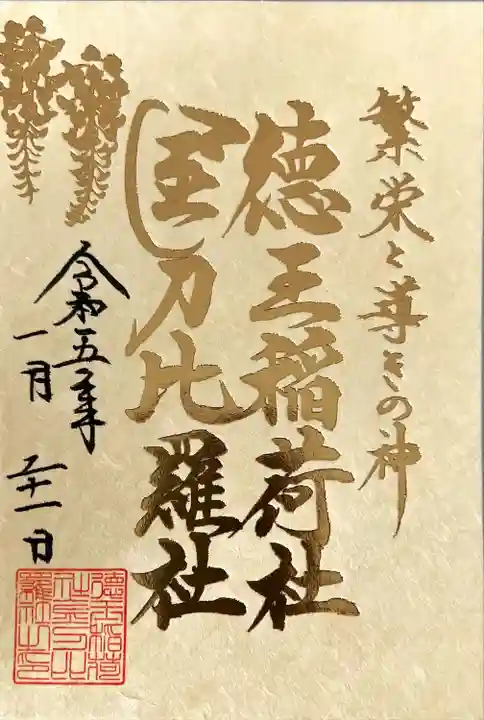 繁栄と導きの神
徳王稲荷社
金刀比羅社
令和五年
一月
二十一日